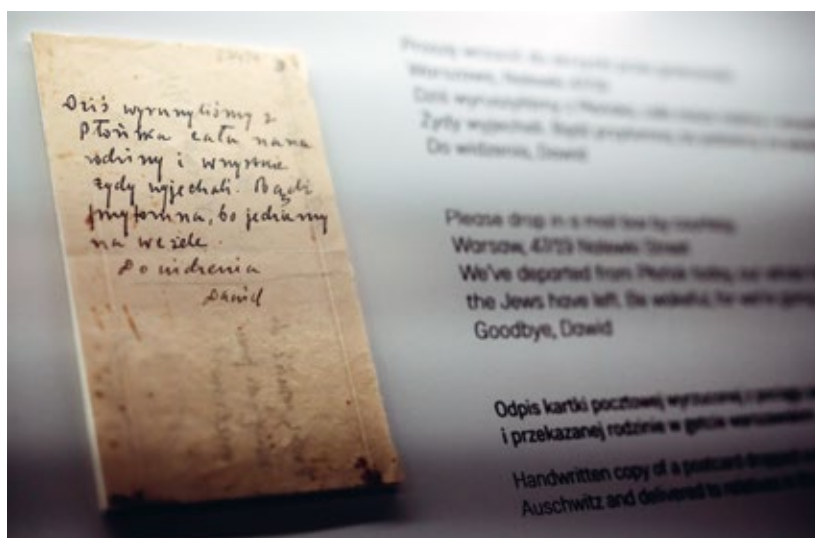 Dziś wyruszyliśmy z
Płońska cała nasza
rodziny i wszystkie
żydy wyjechali. Bądź
przytomna, bo jedziemy
na wesele.
Do widzenia
Dawid
Proszę wrzucić do skrzynki przez grzeczność
Warszawa, Nalewki 47/19
Dziś wyruszyliśmy z Płońska, cała nasza rodzina i wszystkie
Żydy wyjechali. Bądź przytomna, bo jedziemy na wesele.
Do widzenia, Dawid
Please drop in a mail box by courtesy
Warsaw, 47/19 Nalewki Street
We've departed from Płońsk today, our whole
the Jews have left. Be wakeful, for we're going
Goodbye, Dawid
Odpis kartki pocztowej wyrzuconej z pociągu
i przekazanej rodzinie w getcie warszawskim
Handwritten copy of a postcard dropped
Auschwitz and delivered to relatives in the